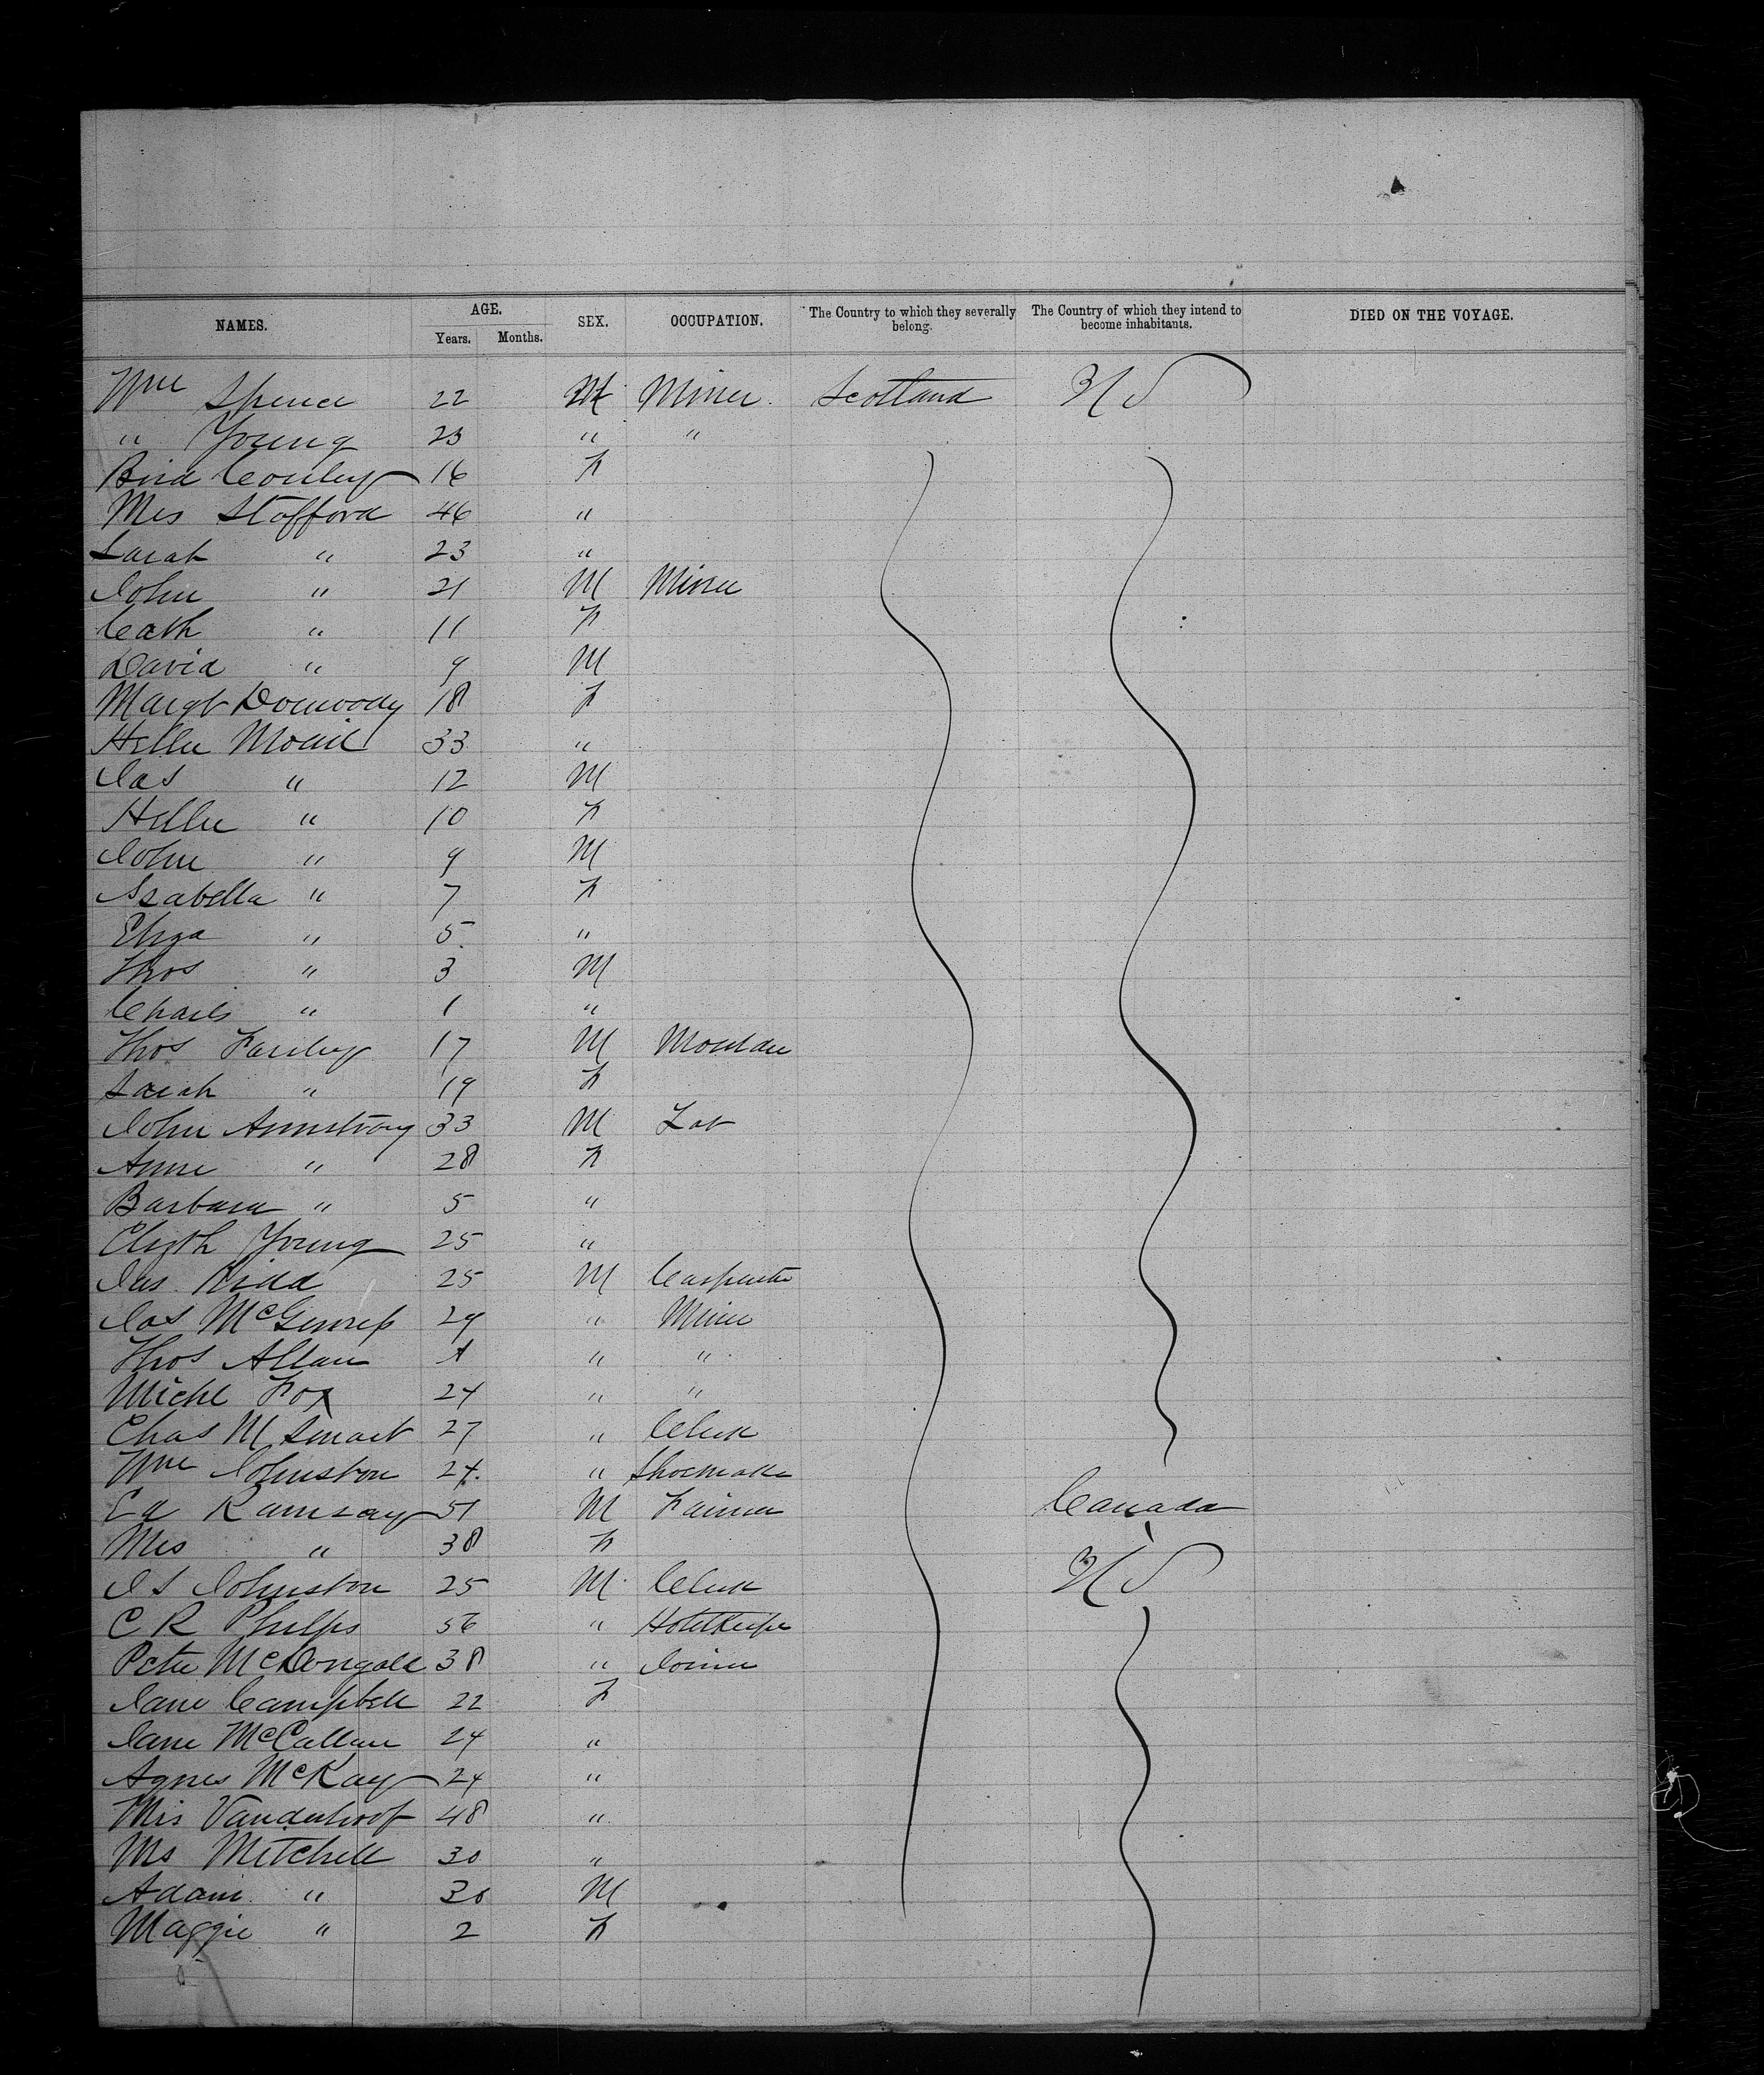 NAMES. AGE. Years. Months. SEX. OCCUPATION. The Country to which they severally belong. The Country of which they intend to become inhabitants. DIED ON THE VOYAGE.
Wm Spence 22 M Miner Scotland U S
" Young 23 " "
Conley 16 F
Mrs Stafford 46 "
Sarah " 23 "
John " 21 M Miner
Cath " 11 F
David " 9 M
Margt Donwoody 18 F
Hellen 33 "
Jas " 12 M
Hellen " 10 F
John " 9 M
Isabella " 7 F
Eliza " 5 "
Thos " 3 M
Charles " 1 "
Thos Farley 17 M Moulder
Sarah " 19 F
John Armstrong 33 M Lab
Anne " 28 F
Barbara " 5 "
Elizth Young 25 "
Jas Kidd 25 M Carpenter
Jas 29 " Miner
Thos Allan " "
Michl Fox 24 " "
Chas M Smart 27 " Clerk
Wm Johnston 24 " Shoemaker
Ed Ramsay 51 M Farmer Canada
Mrs " 38 F
J S Johnston 25 M Clerk U S
C R Phelps 56 " Hotelkeeper
Peter McDongall 38 " Joiner
Jane Campbell 22 F
Jane McCallum 24 "
Agnes McKay 24 "
Mrs Vanderhoof 48 "
Mrs Mitchell 30 "
Adam " 30 M
Maggie " 2 F